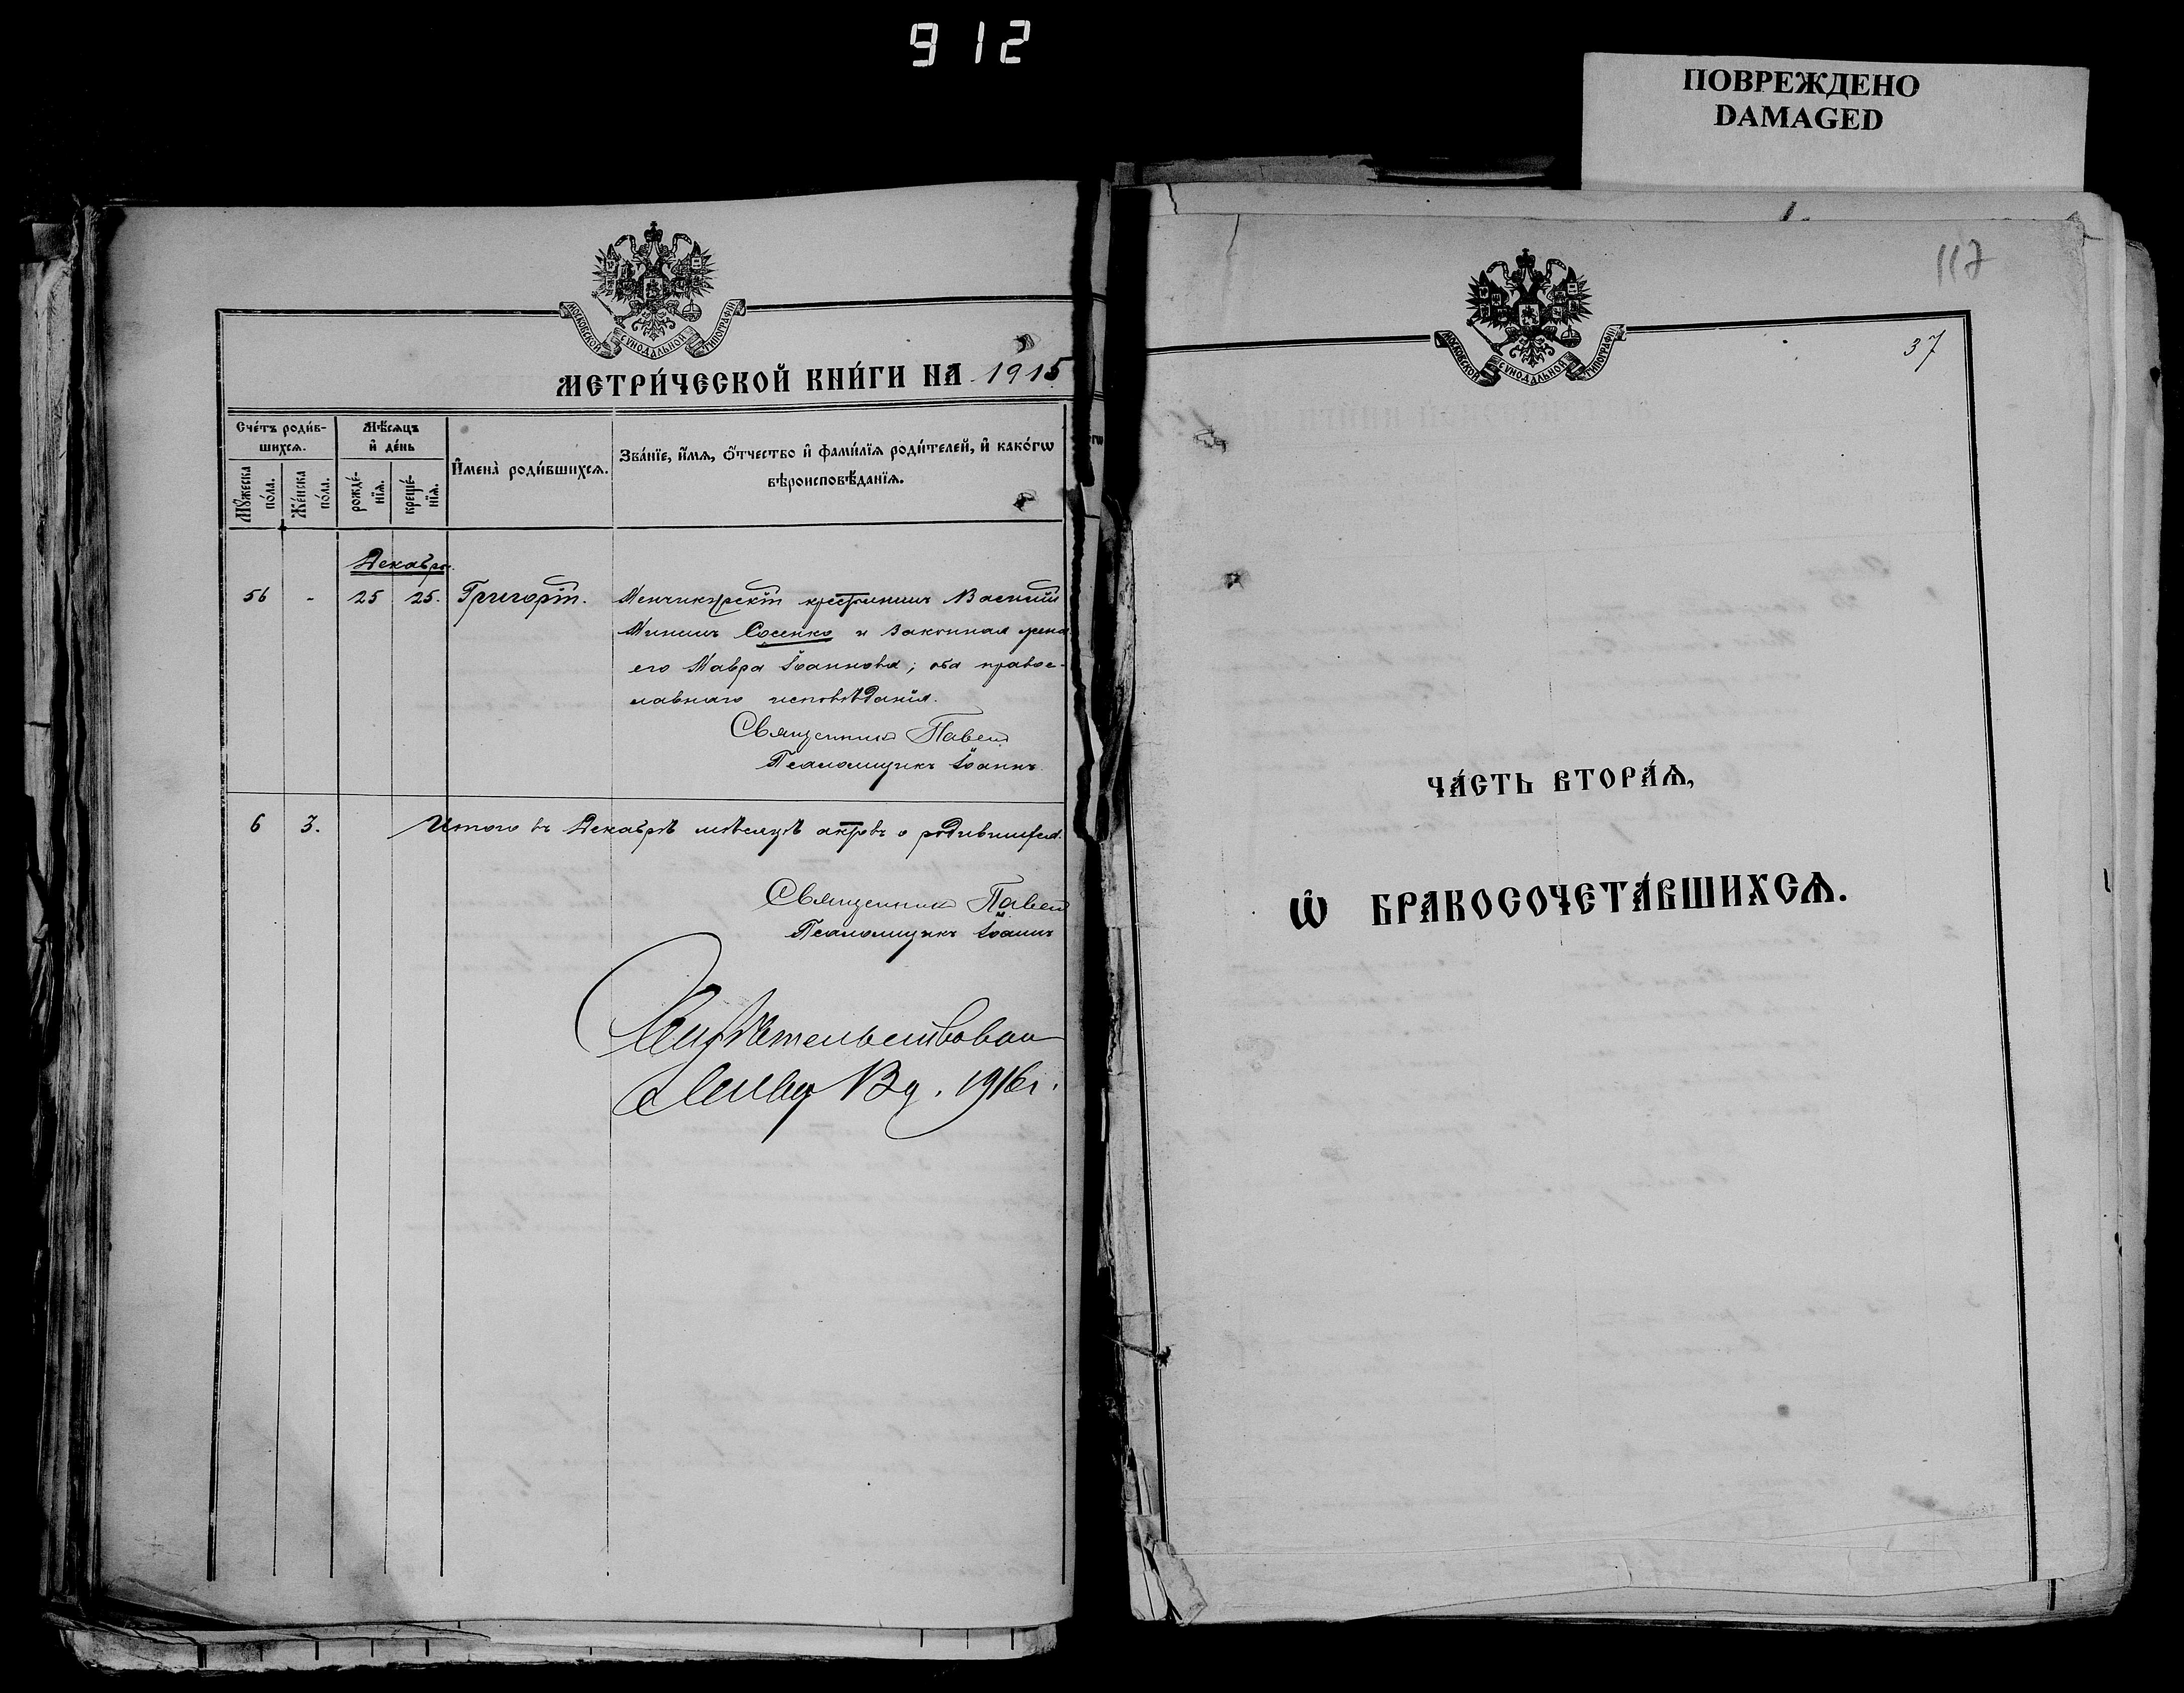 912
ПОВРЕЖДЕНО
DAMAGED
МОСКОВСКОЙ СѴНОДАЛЬНОЙ ТИПОГРАФІИ
МЕТРИ́ЧЕСКОЙ КНИ́ГИ НА 1915
Сче́тъ роди́в-
шихсѧ.
Мꙋ́жеска по́ла.
Же́нска по́ла.
Мѣ́сѧцъ
и҆ де́нь
рожде́-
нїѧ.
креще́-
нїѧ.
И҆мена̀ роди́вшихсѧ.
Зва́нїе, и҆́мѧ, ѻ҆́тчество и҆ фами́лїѧ роди́телей, и҆ како́гѡ
вѣроисповѣ́данїѧ.
Декабрь
56 - 25 25. Григорій. крестьянинъ Василій
Мининъ Сосенко и законная жена
его Мавра Іоаннова; оба правос-
лавнаго исповѣданія.
Священникъ Павелъ
Псаломщикъ Іоаннъ
6 3. Итого въ Декабрѣ мѣсяцѣ актовъ о родившихся.
Священникъ Павелъ
Псаломщикъ Іоаннъ
1916 г.
117
МОСКОВСКОЙ СѴНОДАЛЬНОЙ ТИПОГРАФІИ
37
ЧА́СТЬ ВТОРА́Ѧ,
Ѡ҆ БРАКОСОЧЕТА́ВШИХСѦ.